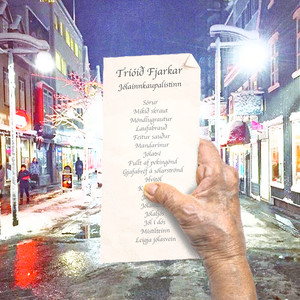 Tríóið Fjarkar
Jólainnkaupalistinn
Sorur
Mikið skraut
Möndlugrautur
Laufabrauð
Feitur sauður
Mandarínur
Jólatré
Fullt af pekingönd
Gjafabréf á sólarströnd
Jól í dós
Mistilteinn
Leigja jólasvein